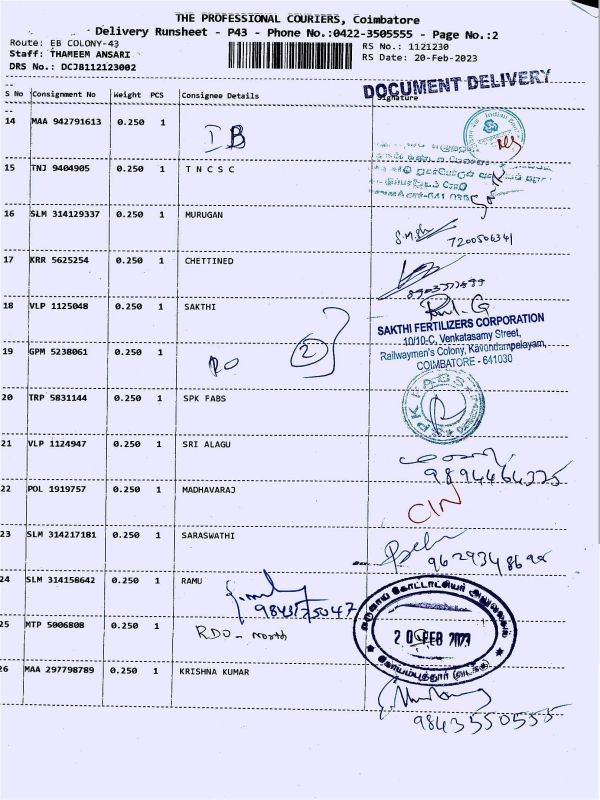 THE PROFESSIONAL COURIERS, Coimbatore
Delivery Runsheet - P43 - Phone No.:0422-3505555 - Page No.:2
Route: EB COLONY-43 RS No.: 1121230
Staff: THAMEEM ANSARI RS Date: 20-Feb-2023
DRS No.: DCJB112123002
DOCUMENT DELIVERY
S No Consignment No Weight PCS Consignee Details Signature
14 MAA 942791613 0.250 1 IB
15 TNJ 9404905 0.250 1 T N C S C
16 SLM 314129337 0.250 1 MURUGAN
7200506341
17 KRR 5625254 0.250 1 CHETTINED
18 VLP 1125048 0.250 1 SAKTHI
SAKTHI FERTILIZERS CORPORATION
10/10-C, Venkatasamy Street,
Railwaymen's Colony, Kavundampalayam,
COIMBATORE - 641030
19 GPM 5238061 0.250 1 RO 2
20 TRP 5831144 0.250 1 SPK FABS
21 VLP 1124947 0.250 1 SRI ALAGU
9894464325
22 POL 1919757 0.250 1 MADHAVARAJ
CIN
23 SLM 314217181 0.250 1 SARASWATHI
24 SLM 314158642 0.250 1 RAMU
9843175047
25 MTP 5006808 0.250 1 RDO - North
20 FEB 2023
26 MAA 297798789 0.250 1 KRISHNA KUMAR
9843550555